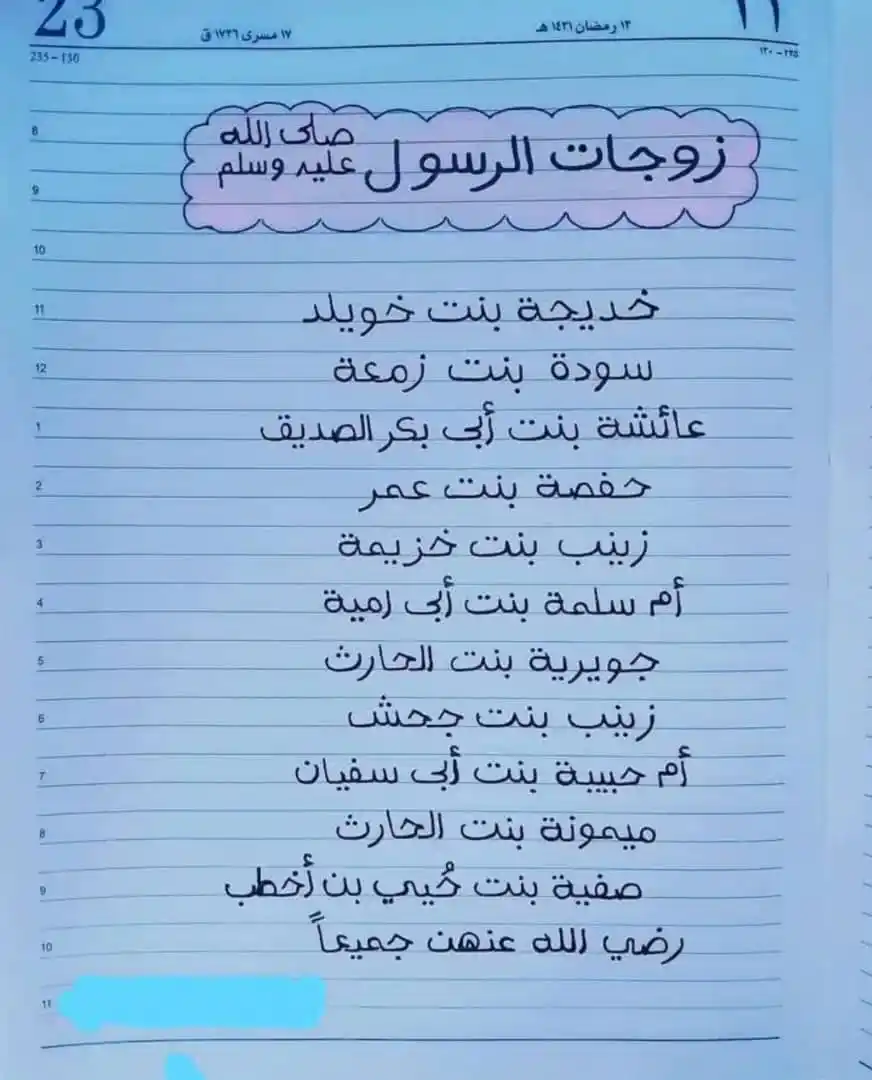 23
١٧ مسرى ١٧٢٦ ق
١٣ رمضان ١٤٣١ هـ
235-130
٢٣٥ - ١٣٠
زوجات الرسول صلى الله عليه وسلم
8
9
10
11 خديجة بنت خويلد
12 سودة بنت زمعة
1 عائشة بنت أبى بكر الصديق
2 حفصة بنت عمر
3 زينب بنت خزيمة
4 أم سلمة بنت أبى امية
5 جويرية بنت الحارث
6 زينب بنت جحش
7 أم حبيبة بنت أبى سفيان
8 ميمونة بنت الحارث
9 صفية بنت حُيي بن أخطب
10 رضي الله عنهن جميعاً
11